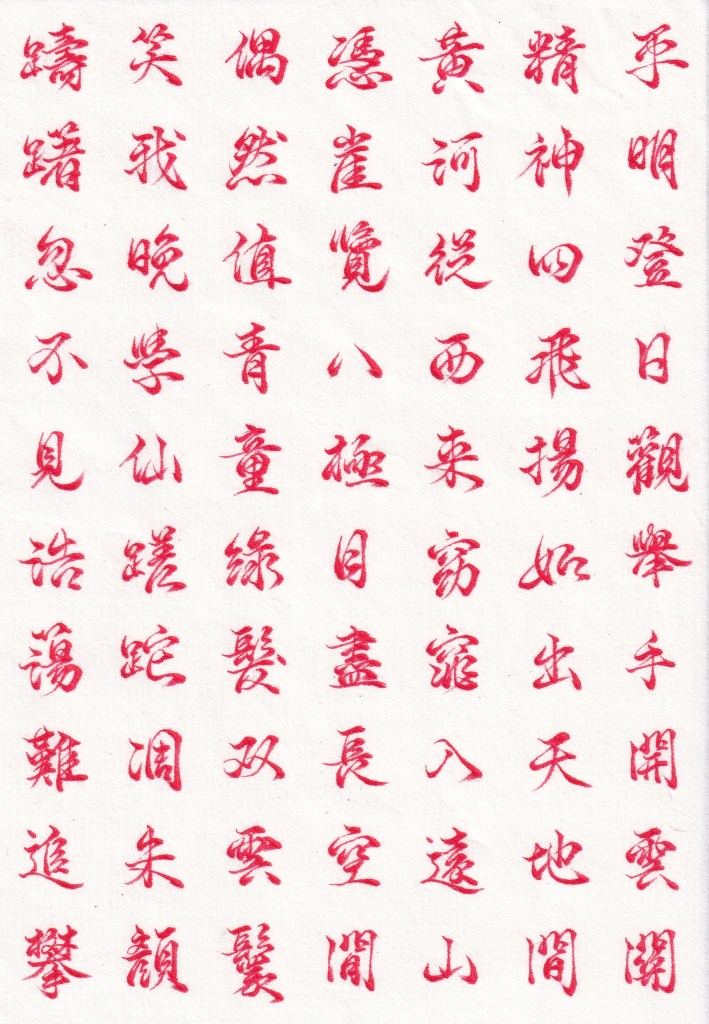 平明登日觀舉手開雲關
精神四飛揚如出天地間
黃河從西来窈窕入遠山
憑崖覽八極目盡長空間
偶然值青童綠髮双雲鬟
笑我晚學仙蹉跎凋朱顏
躊躇忽不見浩蕩難追攀